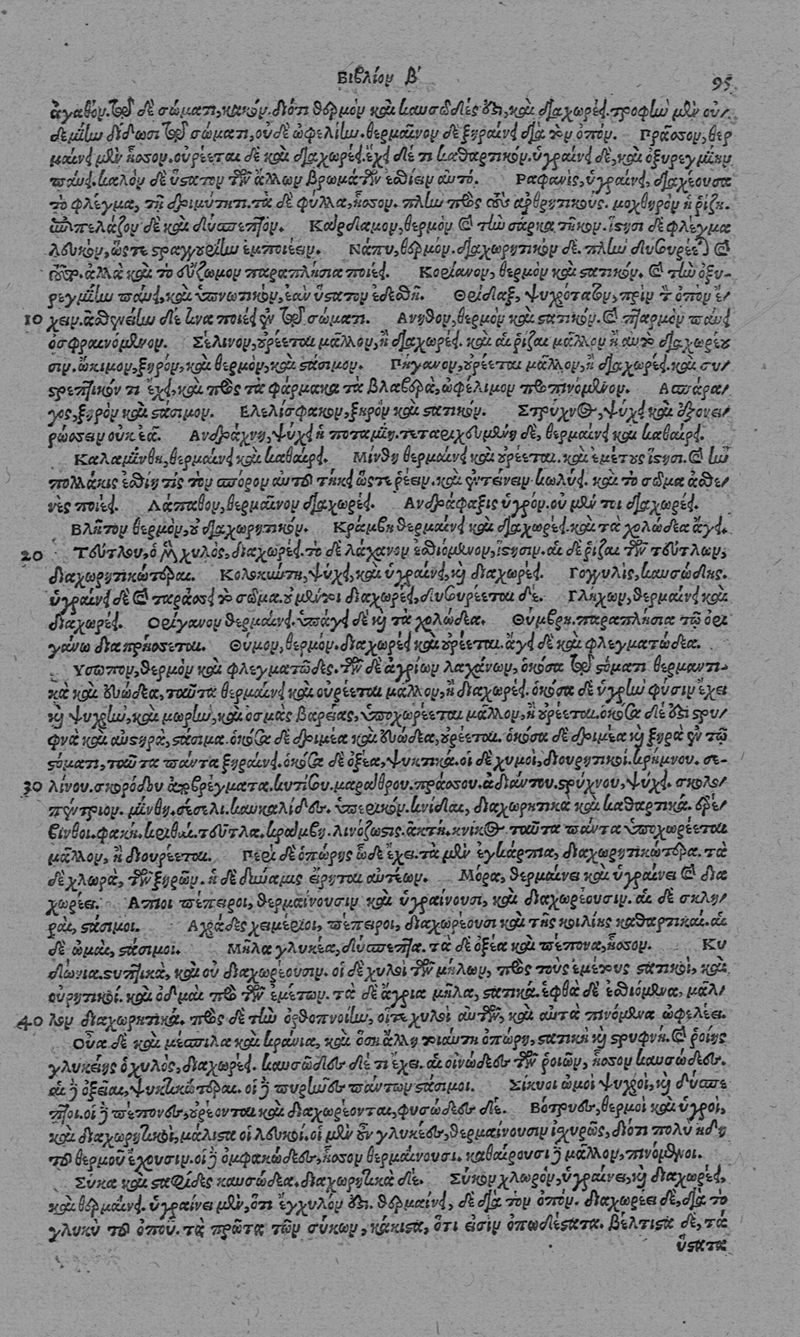 Βιβλίον β′ 95
ἀγαθόν. τῷ δὲ σώματι, κακόν. διότι θερμὸν καὶ καυσῶδές ἐστι, καὶ διαχωρέει. τροφὴν μὲν οὐ/
δεμίην δίδωσι τῷ σώματι, οὐδὲ ὠφελίην. θερμαῖνον δὲ ξηραίνει διὰ τὸν ὀπόν. Πράσον, θερ
μαίνει μὲν ἧσσον. οὐρέεται δὲ καὶ διαχωρέει. ἔχει δέ τι καθαρτικόν. ὑγραίνει δὲ, καὶ ὀξυρεγμίην
παύει. καλὸν δὲ ὕστατον τῶν ἄλλων βρωμάτων ἐσθίειν αὐτό. Ραφανὶς, ὑγραίνει, διαχέουσα
τὸ φλέγμα, τῇ δριμύτητι. τὰ δὲ φύλλα, ἧσσον. πρὸς τοὺς ἀρθριτικούς. μοχθηρὸν ἡ ῥίζη.
ἐπιπελάζον δὲ καὶ δύσπεπτον. Κάρδαμον, θερμὸν καὶ τὴν σάρκα τῆκον. ἵστησι δὲ φλέγμα
λευκὸν, ὥστε στραγγουρίην ἐμποιέειν. Νάπυ, θερμόν. διαχωρητικὸν δὲ. δυσουρέεται καὶ
ἀλλὰ καὶ τὸ εὔζωμον παραπλήσια ποιέει. Κορίανον, θερμὸν καὶ στατικόν. καὶ τὴν ὀξυ-
ρεγμίην παύει, καὶ ὑπνωτικὸν, ἐὰν ὕστατον ἐδεσθῇ. Θρίδαξ, ψυχρότατον, πρὶν τὸν ὀπὸν ἔ/
10 χειν. ἀσθενείην δέ τινα ποιέει ἐν τῷ σώματι. Ἄνηθον, θερμὸν καὶ στατικόν. καὶ πταρμὸν παύει
ὀσφραινόμενον. Σέλινον, οὐρέεται μᾶλλον, ἢ διαχωρέει. καὶ αἱ ῥίζαι μᾶλλον ἢ αὐτὸ διαχωρέου
σιν. ὤκιμον, ξηρὸν, καὶ θερμὸν, καὶ στάσιμον. Πήγανον, οὐρέεται μᾶλλον, ἢ διαχωρέει. καὶ συ/
στρεπτικόν τι ἔχει, καὶ πρὸς τὰ φάρμακα τὰ βλαβερὰ, ὠφέλιμον προπινόμενον. Ἀσπάρα/
γος, ξηρὸν καὶ στάσιμον. Ἐλελίσφακον, ξηρὸν καὶ στατικόν. Στρύχνος, ψύχει καὶ ἐξονει/
ρώσσειν οὐκ ἐᾷ. Ἀνδράχνη, ψύχει ἡ ποταμίη. τεταριχευμένη δὲ, θερμαίνει καὶ καθαίρει.
Καλαμίνθη, θερμαίνει καὶ καθαίρει. Μίνθη θερμαίνει καὶ οὐρέεται. καὶ ἐμέτους ἵστησι. καὶ ἢν
πολλάκις ἐσθίῃ τις τὸν σπόρον αὐτοῦ τήκει ὥστε ῥέειν. καὶ ἐντείνειν κωλύει. καὶ τὸ σῶμα ἀσθε/
νὲς ποιέει. Λάπαθον, θερμαῖνον διαχωρέει. Ἀνδράφαξις ὑγρόν. οὐ μέντοι διαχωρέει.
Βλῆτον θερμὸν, οὐ διαχωρητικόν. Κράμβη θερμαίνει καὶ διαχωρέει. καὶ τὰ χολώδεα ἄγει.
20 Τεύτλου, ὁ μὲν χυλὸς, διαχωρέει. τὸ δὲ λάχανον ἐσθιόμενον, ἵστησιν. αἱ δὲ ῥίζαι τῶν τεύτλων,
διαχωρητικώτεραι. Κολοκύντη, ψύχει, καὶ ὑγραίνει, καὶ διαχωρέει. Γογγυλὶς, καυσώδης.
ὑγραίνει δὲ καὶ ταράσσει τὸ σῶμα. οὐ μέντοι διαχωρέει, δυσουρέεται δέ. Γλήχων, θερμαίνει καὶ
διαχωρέει. Ὀρίγανον θερμαίνει. ὑπάγει δὲ καὶ τὰ χολώδεα. Θύμβρη. παραπλήσια τῷ ὀρι
γάνῳ διαπρήσσεται. Θύμον, θερμὸν. διαχωρέει καὶ οὐρέεται. ἄγει δὲ καὶ φλεγματώδεα.
Ὕσωπον, θερμὸν καὶ φλεγματῶδες. τῶν δὲ ἀγρίων λαχάνων, ὁκόσα τῷ στόματι θερμαντι-
κὰ καὶ εὐώδεα, ταῦτα θερμαίνει καὶ οὐρέεται μᾶλλον, ἢ διαχωρέει. ὁκόσα δὲ ὑγρὴν φύσιν ἔχει
καὶ ψυχρὴν, καὶ μωρὴν, καὶ ὀσμὰς βαρείας, ὑποχωρέεται μᾶλλον, ἢ οὐρέεται. ὁκόσα δέ ἐστι στρυ/
φνὰ καὶ αὐστηρὰ, στάσιμα. ὁκόσα δὲ δριμέα καὶ εὐώδεα, οὐρέεται. ὁκόσα δὲ δριμέα καὶ ξηρὰ ἐν τῷ
στόματι, ταῦτα πάντα ξηραίνει. ὁκόσα δὲ ὀξέα, ψυκτικά. οἱ δὲ χυμοὶ, διουρητικοὶ. κρήμνου. σε-
30 λίνου. σκορόδου ἀποβρέγματα. κυτίσου. μαράθρου. πράσου. ἀδιάντου. στρύχνου, ψύχει. σκολο/
πένδριον. μίνθη. σέσελι. καυκαλίδες. ὑπερικὸν. κνίδαι, διαχωρητικὰ καὶ καθαρτικά. ἐρέ/
βινθοι. φακῆ. κριθαὶ. τεῦτλα. κράμβη. λινόζωστις. ἀκτῆ. κνῆκος. ταῦτα πάντα ὑποχωρέεται
μᾶλλον, ἢ διουρέεται. Περὶ δὲ ὀπώρης ὧδε ἔχει. τὰ μὲν ἐγκάρπια, διαχωρητικώτερα. τὰ
δὲ χλωρὰ, τῶν ξηρῶν. ἡ δὲ δύναμις εἴρηται αὐτέων. Μόρα, θερμαίνει καὶ ὑγραίνει καὶ δια
χωρέει. Ἄπιοι πέπειροι, θερμαίνουσιν καὶ ὑγραίνουσι, καὶ διαχωρέουσιν. αἱ δὲ σκλη/
ραὶ, στάσιμοι. Ἀχράδες χειμέριοι, πέπειροι, διαχωρέουσι καὶ τῆς κοιλίης καθαρτικαί. αἱ
δὲ ὠμαὶ, στάσιμοι. Μῆλα γλυκέα, δύσπεπτα. τὰ δὲ ὀξέα καὶ πέπονα, ἧσσον. Κυ
δώνια. στυπτικὰ, καὶ οὐ διαχωρέουσιν. οἱ δὲ χυλοὶ τῶν μήλων, πρὸς τοὺς ἐμέτους στατικοὶ, καὶ
οὐρητικοί. καὶ ὀδμαὶ πρὸς τῶν ἐμέτων. τὰ δὲ ἄγρια μῆλα, στατικά. ἑφθὰ δὲ ἐσθιόμενα, μᾶλ/
40 λον διαχωρητικά. πρὸς δὲ τὴν ὀρθοπνοίην, οἵ τε χυλοὶ αὐτῶν, καὶ αὐτὰ πινόμενα ὠφελέει.
Οὖα δὲ καὶ μέσπιλα καὶ κράνια, καὶ ὅση ἄλλη τοιαύτη ὀπώρη, στατικὴ καὶ στρυφνή. καὶ ῥοιῆς
γλυκείης ὁ χυλὸς, διαχωρέει. καυσῶδες δέ τι ἔχει. αἱ οἰνώδεες τῶν ῥοιῶν, ἧσσον καυσώδεες.
αἱ δὲ ὀξεῖαι, ψυκτικώτεραι. οἱ δὲ πυρῆνες πάντων στάσιμοι. Σίκυοι ὠμοὶ ψυχροὶ, καὶ δύσπε
πτοι. οἱ δὲ πέπονες, οὐρέονται καὶ διαχωρέονται, φυσώδεες δέ. Βότρυες, θερμοὶ καὶ ὑγροὶ,
καὶ διαχωρητικοὶ, μάλιστα οἱ λευκοί. οἱ μὲν οὖν γλυκέες, θερμαίνουσιν ἰσχυρῶς, διότι πολὺ ἤδη
τοῦ θερμοῦ ἔχουσιν. οἱ δὲ ὀμφακώδεες, ἧσσον θερμαίνουσι. καθαίρουσι δὲ μᾶλλον, πινόμενοι.
Σῦκα καὶ σταφίδες καυσώδεα. διαχωρητικὰ δέ. Σῦκον χλωρὸν, ὑγραίνει, καὶ διαχωρέει,
καὶ θερμαίνει. ὑγραίνει μὲν, ὅτι ἔγχυλόν ἐστι. θερμαίνει, δὲ διὰ τὸν ὀπόν. διαχωρέει δὲ, διὰ τὸ
γλυκὺ τοῦ ὀποῦ. τὰ πρῶτα τῶν σύκων, κάκιστα, ὅτι εἰσὶν ὀπωδέστατα. βέλτιστα δὲ, τὰ
ὕστατα